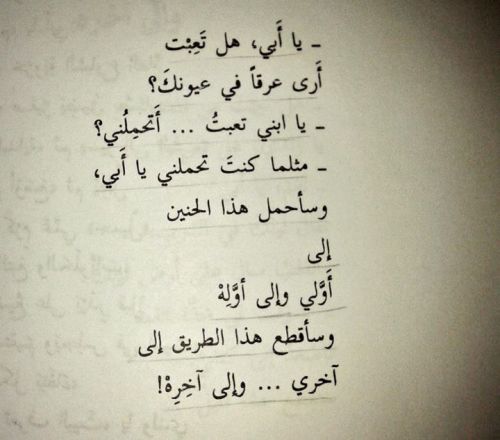 ـ يا أَبي، هل تَعِبْت
أَرى عرقاً في عيونكَ؟
ـ يا ابني تعبتُ ... أَتحمِلُني؟
ـ مثلما كنتَ تحملني يا أَبي،
وسأحمل هذا الحنين
إلى
أَوَّلي وإلى أوَّلِهْ
وسأقطع هذا الطريق إلى
آخري ... وإلى آخِرِهْ!